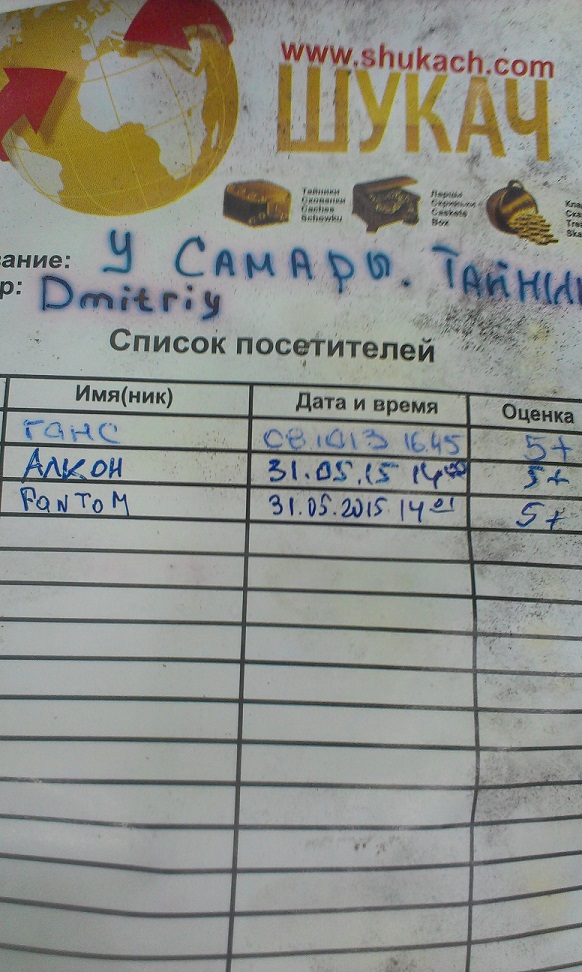 www.shukach.com
ШУКАЧ
Тайники
Схованки
Caches
Schowku
Ларцы
Скриньки
Caskets
Box
ание: У САМАРЫ. ТАЙНИ
р: Dmitriy
Список посетителей
Имя(ник) Дата и время Оценка
ГАНС 08.10.13 16.45 5+
АЛКОН 31.05.15 14 5+
FANTOM 31.05.2015 14 01 5+